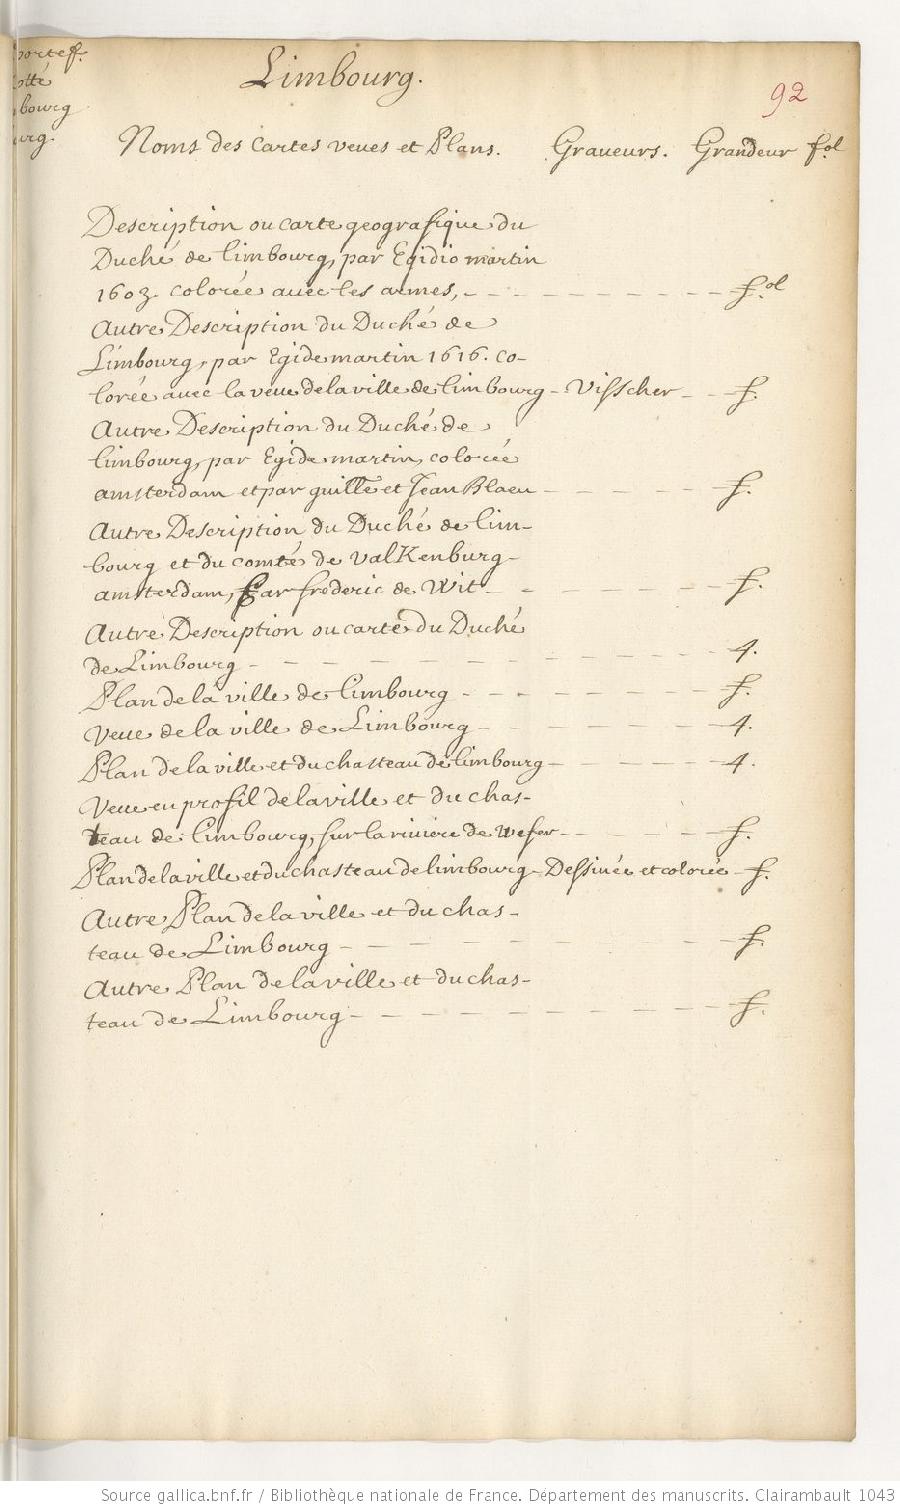 Limbourg.
92
Noms des Cartes veues et Plans. Graueurs. Grandeur fol
Description ou carte geografique du
Duché de limbourg, par Egidio martin
1603 colorée auec les armes, - - - - - - - - fol
Autre Description du Duché de
Limbourg, par Egide martin 1616. co-
lorée auec la veue de la ville de limbourg - Visscher - - f.
Autre Description du Duché de
limbourg, par Egide martin, colorée
amsterdam et par guille et Jean Blaeu - - - - - - f.
Autre Description du Duché de lim-
bourg et du comté de ValKenburg -
amsterdam, par frederic de Wit - - - - - - f.
Autre Description ou carte du Duché
de Limbourg - - - - - - - - - - 4.
Plan de la ville de limbourg - - - - - - - f.
Veue de la ville de Limbourg - - - - - - 4.
Plan de la ville et du chasteau de limbourg - - - - - 4.
Veue en profil de la ville et du chas-
teau de limbourg, sur la riviere de Weser - - - - - f.
Plan de la ville et du chasteau de limbourg - Dessinée et colorée - f.
Autre Plan de la ville et du chas-
teau de Limbourg - - - - - - - - f.
Autre Plan de la ville et du chas-
teau de Limbourg - - - - - - - - f.
portef.
cotté
bourg
urg.
Source gallica.bnf.fr / Bibliothèque nationale de France. Département des manuscrits. Clairambault 1043